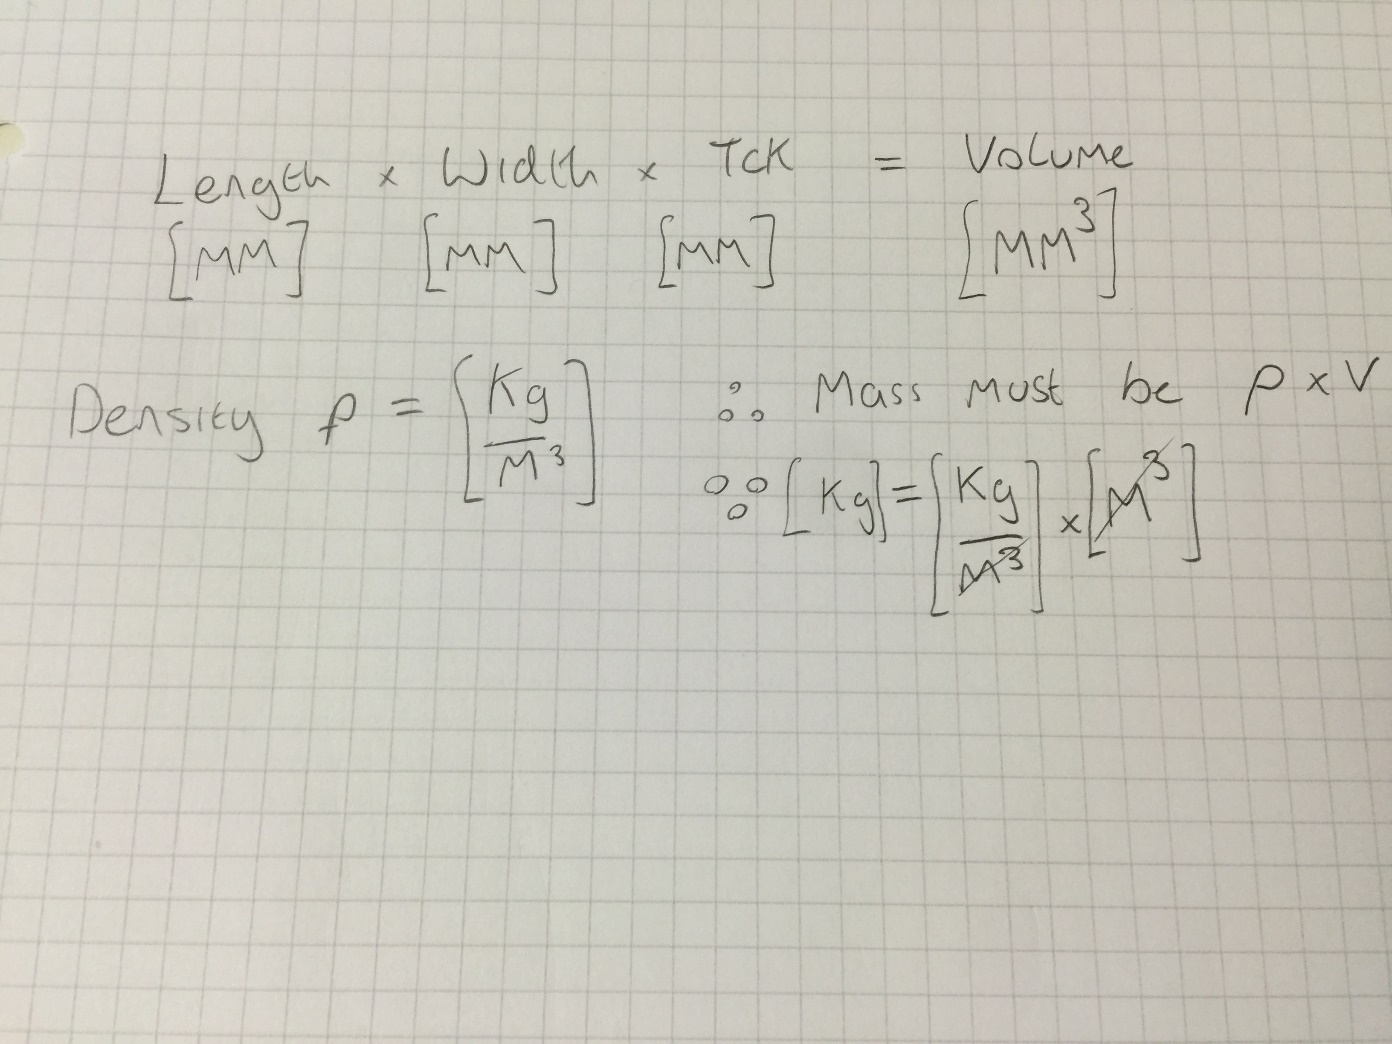 Length × Width × TCK = Volume
[MM] [MM] [MM] [MM³]
Density ρ = [Kg/M³] ∴ Mass must be ρ × V
∵ [Kg] = [Kg/M³] × [M³]